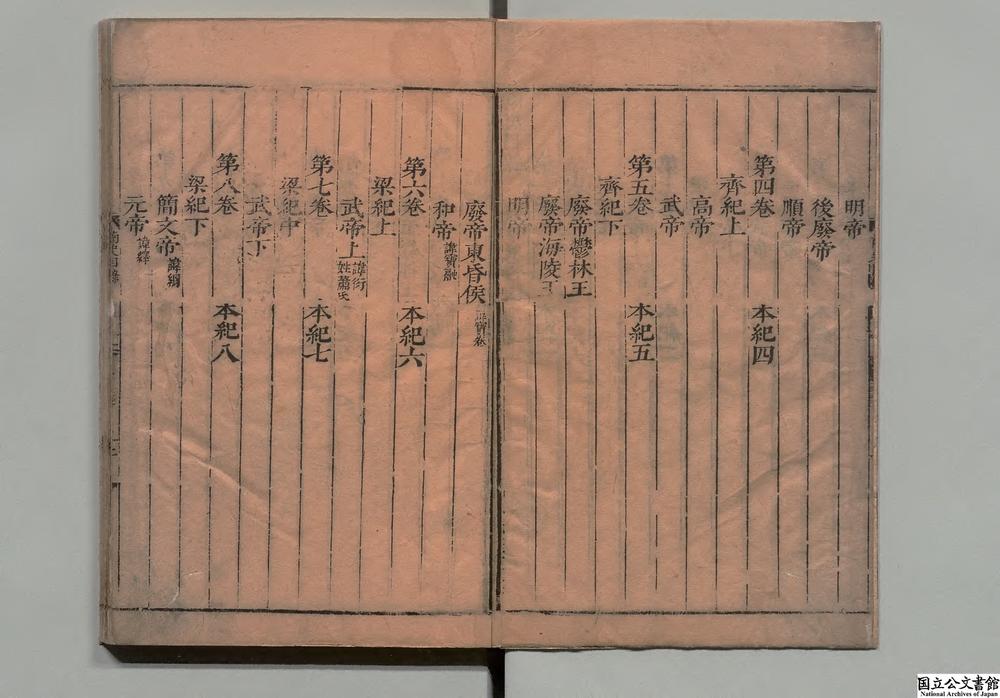 明帝
後廢帝
順帝
第四卷 本紀四
齊紀上
高帝
武帝
第五卷 本紀五
齊紀下
廢帝鬱林王
廢帝海陵王
明帝
廢帝東昏侯 諱寶卷
和帝 諱寶融
第六卷 本紀六
梁紀上
武帝上 諱衍 姓蕭氏
第七卷 本紀七
梁紀中
武帝下
第八卷 本紀八
梁紀下
簡文帝 諱綱
元帝 諱繹
国立公文書館
National Archives of Japan